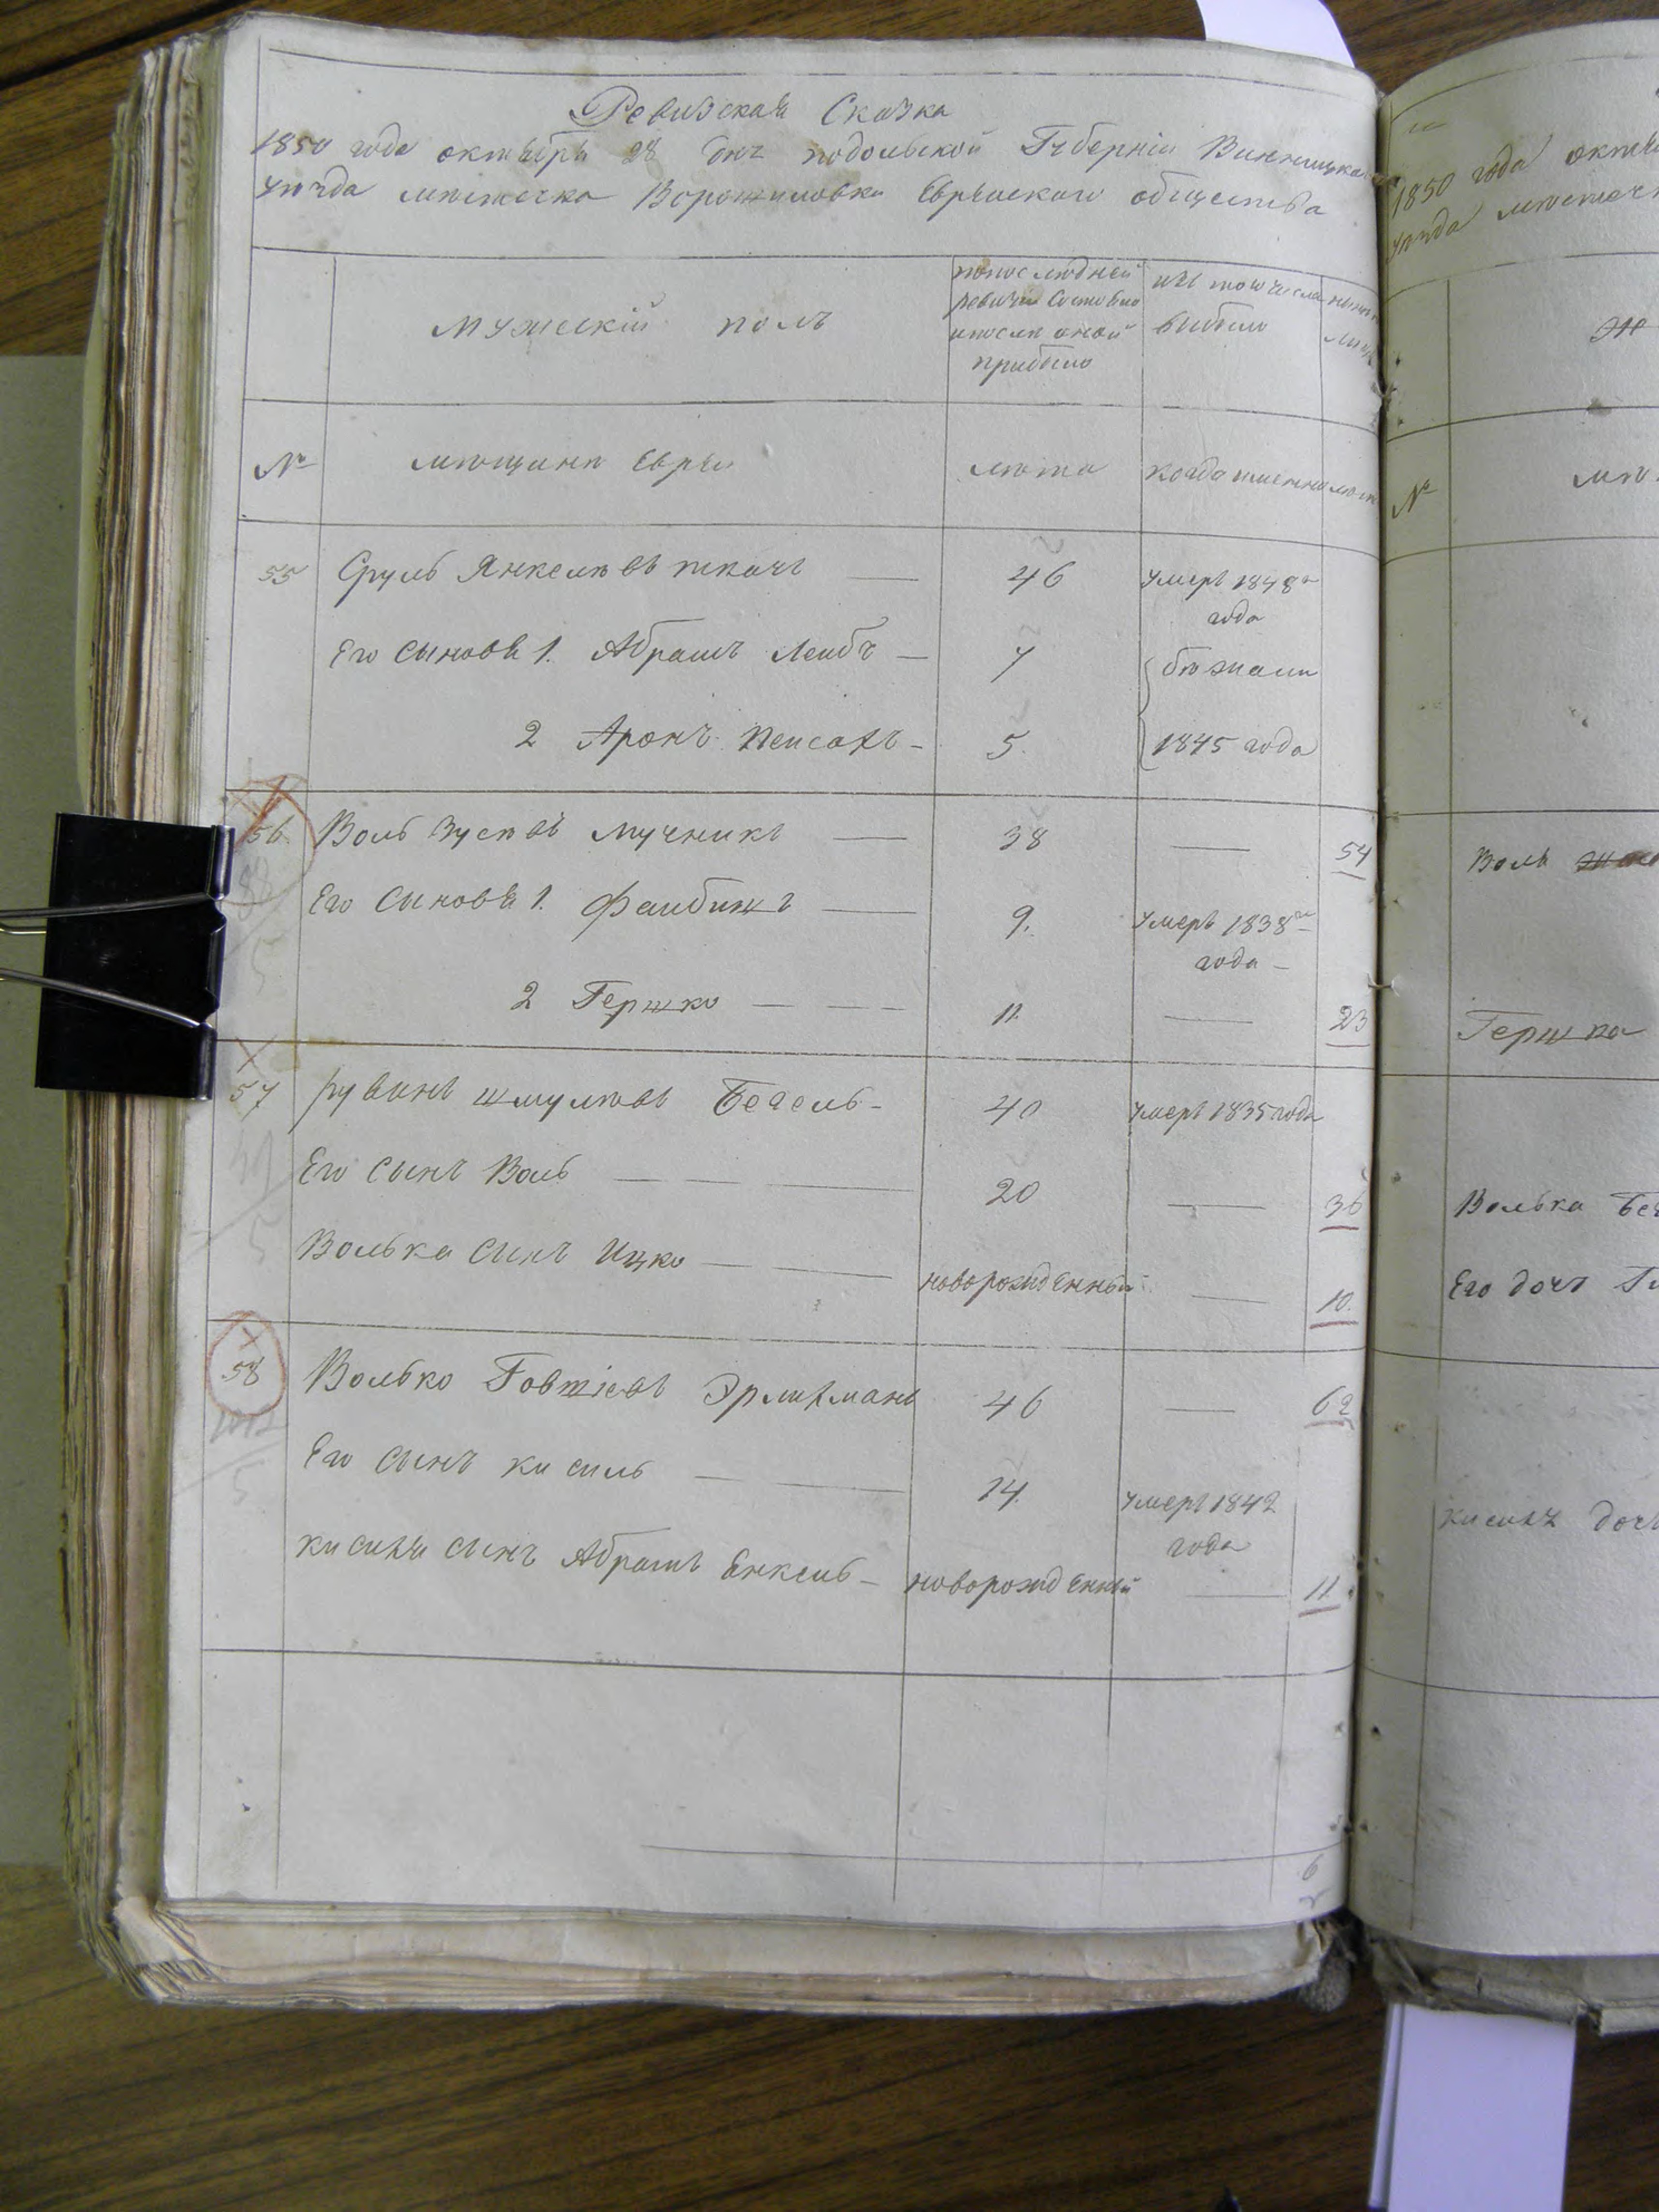 Ревизская Сказка
1850 года октября 28 дня подольской Губерніи Винницкаго
уѣзда мѣстечка Ворошиловки Еврейскаго общества
мужескій полъ
попоследней
ревизіи состояло
ипосле оной
прибыло
изъ того числа
выбыло
№
мѣщане Евреи
лѣта
когда именно
лѣта
55 Сруль Янкелевъ ткачъ — 46 умеръ 1848го
года
Его сыновя 1. Абрамъ Лейбъ — 7 бежали
2 Аронъ Пейсахъ — 5. 1845 года
56. Воль Зусевъ Мучникъ — 38 — 54
Его сыновя 1. Файбишъ — 9. умеръ 1838го
года —
2 Гершко — — 11. — 23
57 Рувинъ Шмулевъ Бегель — 40 умеръ 1835 года
Его сынъ Воль — — 20 — 36
Волька сынъ Ицко — — новорожденный — 10.
58 Волько Говшіевъ Эрлихманъ 46 — 62
Его сынъ кисиль — — 14. умеръ 1842
года
кисиля сынъ Абрамъ Енкель — новорожденный — 11
6
1850 года
уѣзда
№
Воль
Гершка
Волька
Его дочъ